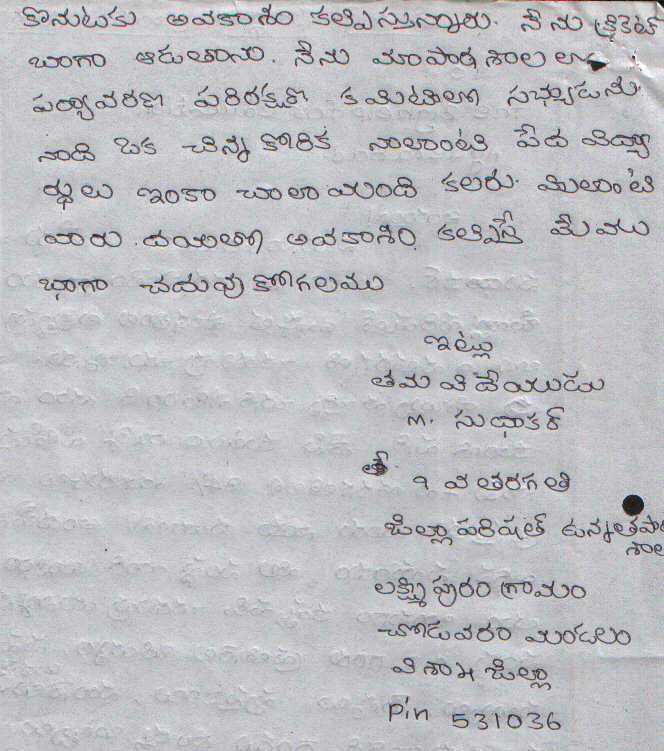 కొనుటకు అవకాశం కల్పిస్తున్నారు. నేను క్రికెట్
బాగా ఆడుతాను. నేను మాపాఠశాలలో
పర్యావరణ పరిరక్షణ కమిటిలో సభ్యుడును.
నాది ఒక చిన్న కోరిక నాలాంటి పేద విద్యా
ర్థులు ఇంకా చాలా మంది కలరు. మిలాంటి
వారు దయతో అవకాశం కల్పిస్తే మేము
బాగా చదువుకోగలము
ఇట్లు
తమ విదేయుడు
M. సుధాకర్
9 వ తరగతి
జిల్లాపరిషత్ ఉన్నతపాఠ
శాల
లక్ష్మిపురం గ్రామం
చోడవరం మండలం
విశాఖ జిల్లా
Pin 531036